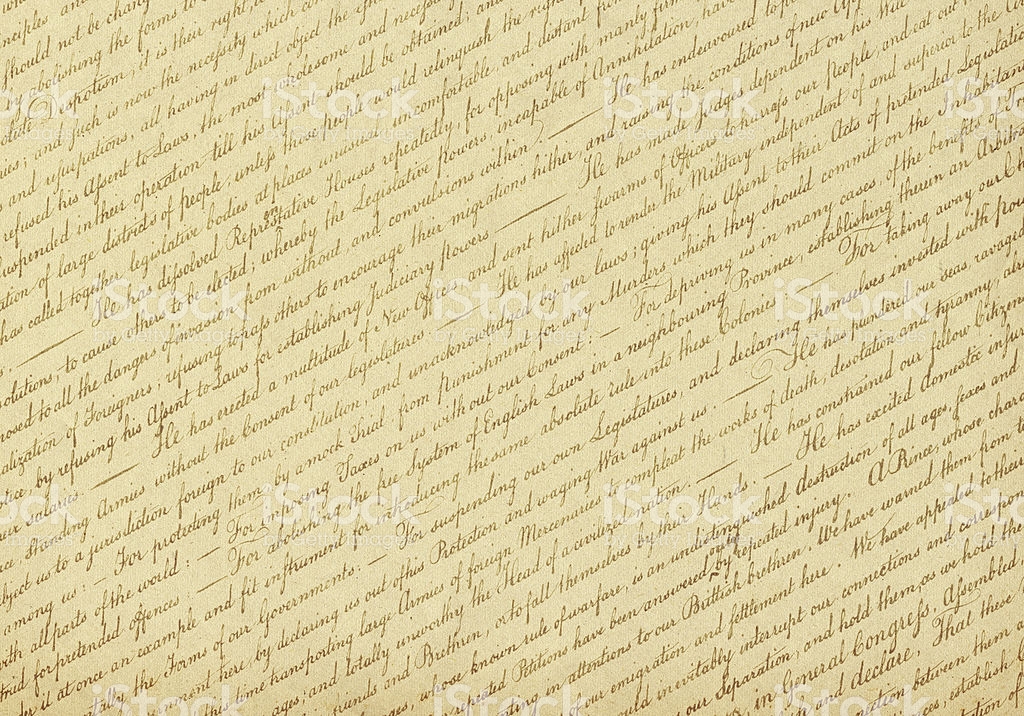 nciples and
should not be chang
abolishing the forms to
Despotism, it is their right, it
ies; and such is now the necessity which con
s and usurpations, all having in direct object the
refused his Assent to Laws, the most wholesome and necessary
suspended in their operation till his Assent should be obtained; and
ation of large districts of people, unless those people would relinquish the right
has called together legislative bodies at places unusual, uncomfortable, and distant from
— He has dissolved Representative Houses repeatedly, for opposing with manly firm
olutions, to cause others to be elected; whereby the Legislative Powers, incapable of Annihilation, have
posed to all the dangers of invasion from without, and convulsions within. — He has endeavoured to p
alization of Foreigners; refusing to pass others to encourage their migrations hither, and raising the conditions of new App
ice by refusing his Assent to Laws for establishing Judiciary powers. — He has made Judges dependent on his Will
eir salaries. — He has erected a multitude of New Offices, and sent hither swarms of Officers to harrass our People, and eat out
ce, standing Armies without the Consent of our legislatures. — He has affected to render the Military independent of and superior to the Civ
bject us to a jurisdiction foreign to our constitution, and unacknowledged by our laws; giving his Assent to their Acts of pretended Legislatio
among us: — For protecting them, by a mock Trial from punishment for any Murders which they should commit on the Inhabitant
with all parts of the world: — For imposing Taxes on us without our Consent: — For depriving us in many cases, of the benefits of
ried for pretended offences — For abolishing the free System of English Laws in a neighbouring Province, establishing therein an Arbitra
er it at once an example and fit instrument for introducing the same absolute rule into these Colonies — For taking away our Ch
tally the Forms of our Governments: — For suspending our own Legislatures, and declaring themselves invested with pow
rnment here, by declaring us out of his Protection and waging War against us. — He has plundered our seas, ravaged
this time transporting large Armies of foreign Mercenaries to compleat the works of death, desolation and tyranny, alr
ages, and totally unworthy the Head of a civilized nation. — He has constrained our fellow Citizens
riends and Brethren, or to fall themselves by their Hands. — He has excited domestic insur
ages, whose known rule of warfare, is an undistinguished destruction of all ages, sexes and
repeated Petitions have been answered only by repeated injury. A Prince, whose charac
nting in attentions to our Brittish brethren. We have warned them from t
of our emigration and settlement here. We have appealed to their
ould inevitably interrupt our connections and correspon
our Separation, and hold them, as we hold the
in General Congress, Assembled,
and declare, That these
ection between them a
es, establish C
iStock
by Getty Images